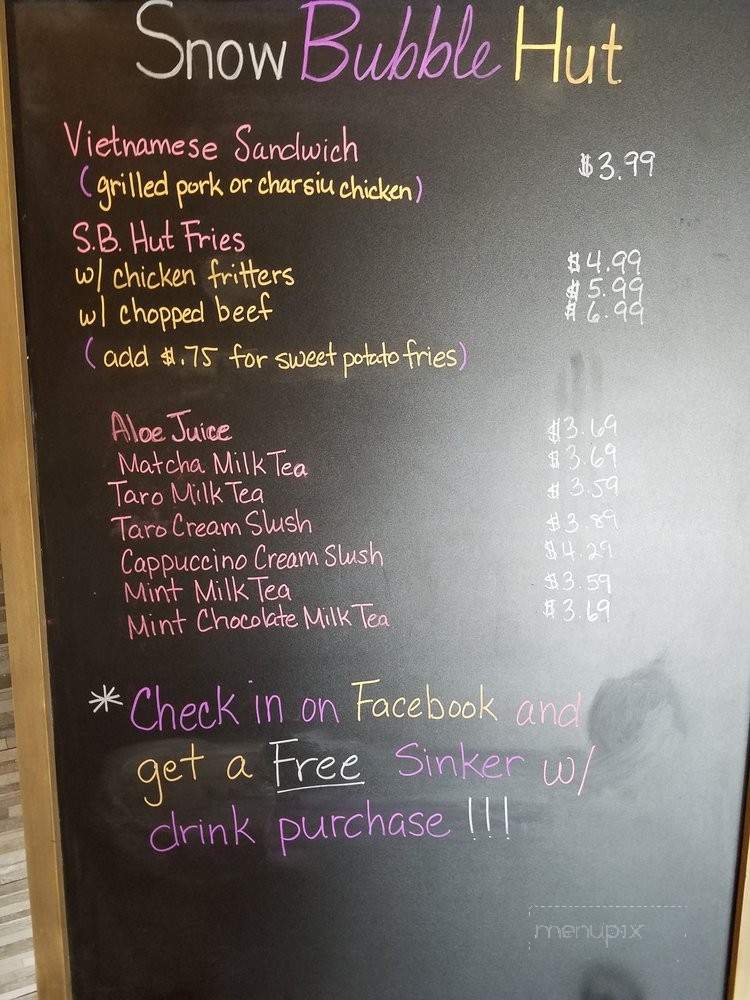 Snow Bubble Hut
Vietnamese Sandwich $3.99
(grilled pork or charsiu chicken)
S.B. Hut Fries $4.99
w/ chicken fritters $5.99
w/ chopped beef $6.99
(add $.75 for sweet potato fries)
Aloe Juice $3.69
Matcha Milk Tea $3.69
Taro Milk Tea $3.59
Taro Cream Slush $3.89
Cappuccino Cream Slush $4.29
Mint Milk Tea $3.59
Mint Chocolate Milk Tea $3.69
*Check in on Facebook and
get a Free Sinker w/
drink purchase!!!
menupix